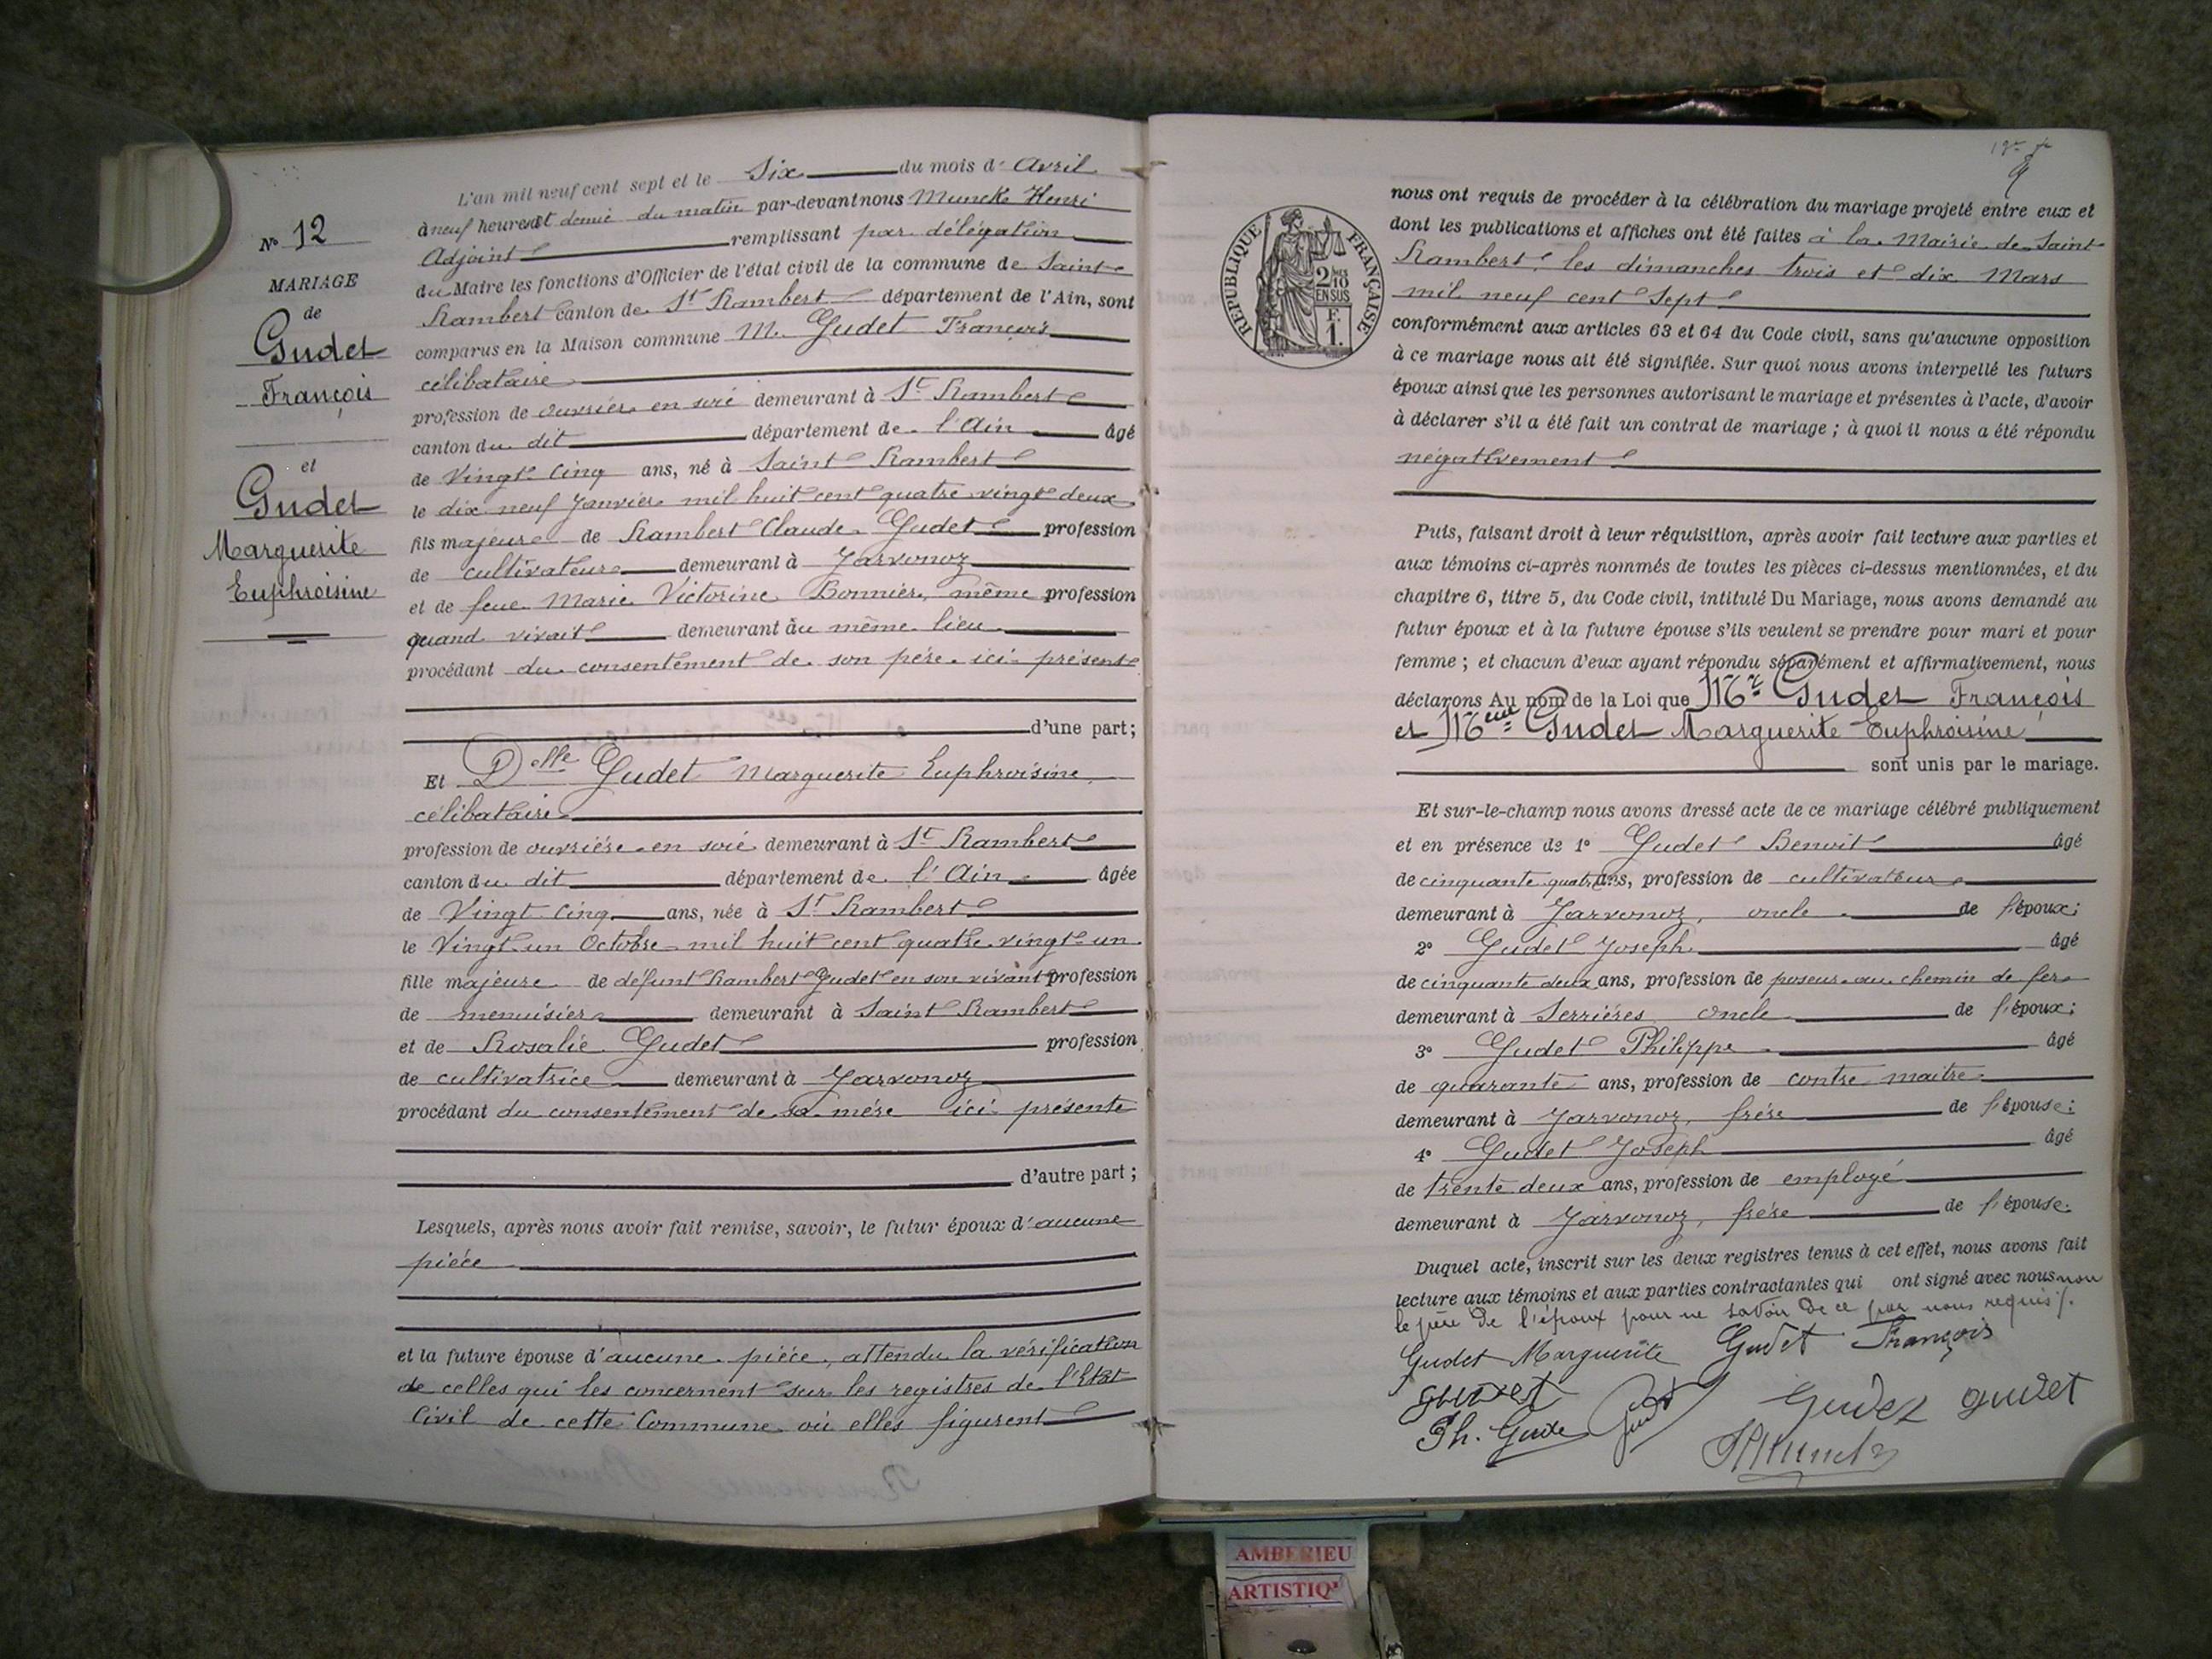 N° 12
MARIAGE
de
Gudet
François
et
Gudet
Marguerite
Euphroisine
L'an mil neuf cent sept et le Six du mois d'Avril
à neuf heures et demie du matin par-devant nous Munck Henri
Adjoint remplissant par délégation
du Maire les fonctions d'Officier de l'état civil de la commune de Saint
Rambert canton de St Rambert département de l'Ain, sont
comparus en la Maison commune M. Gudet François
célibataire
profession de ouvrier en soie demeurant à St Rambert
canton du dit département de l'Ain âgé
de Vingt cinq ans, né à Saint Rambert
le dix neuf Janvier mil huit cent quatre vingt deux
fils majeur de Rambert Claude Gudet profession
de cultivateur demeurant à Javornoz
et de feue Marie Victorine Bonnier, même profession
quand vivait demeurant au même lieu
procédant du consentement de son père ici présent
d'une part;
Et Delle Gudet Marguerite Euphroisine
célibataire
profession de ouvrière en soie demeurant à St Rambert
canton du dit département de l'Ain âgée
de Vingt cinq ans, née à St Rambert
le Vingt un Octobre mil huit cent quatre vingt un
fille majeure de défunt Rambert Gudet en son vivant profession
de menuisier demeurant à Saint Rambert
et de Rosalie Gudet profession
de cultivatrice demeurant à Javornoz
procédant du consentement de sa mère ici présente
d'autre part;
Lesquels, après nous avoir fait remise, savoir, le futur époux d'aucune
pièce
et la future épouse d'aucune pièce, attendu la vérification
de celles qui les concernent sur les registres de l'Etat
Civil de cette Commune où elles figurent
RÉPUBLIQUE FRANÇAISE
2/10
EN SUS
F.
1.
nous ont requis de procéder à la célébration du mariage projeté entre eux et
dont les publications et affiches ont été faites à la Mairie de Saint
Rambert, les dimanches trois et dix Mars
mil neuf cent Sept
conformément aux articles 63 et 64 du Code civil, sans qu'aucune opposition
à ce mariage nous ait été signifiée. Sur quoi nous avons interpellé les futurs
époux ainsi que les personnes autorisant le mariage et présentes à l'acte, d'avoir
à déclarer s'il a été fait un contrat de mariage; à quoi il nous a été répondu
négativement
Puis, faisant droit à leur réquisition, après avoir fait lecture aux parties et
aux témoins ci-après nommés de toutes les pièces ci-dessus mentionnées, et du
chapitre 6, titre 5, du Code civil, intitulé Du Mariage, nous avons demandé au
futur époux et à la future épouse s'ils veulent se prendre pour mari et pour
femme; et chacun d'eux ayant répondu séparément et affirmativement, nous
déclarons Au nom de la Loi que Mr Gudet François
et Melle Gudet Marguerite Euphroisine
sont unis par le mariage.
Et sur-le-champ nous avons dressé acte de ce mariage célébré publiquement
et en présence de 1° Gudet Benoit âgé
de cinquante quatre ans, profession de cultivateur
demeurant à Javornoz, oncle de l'époux;
2° Gudet Joseph âgé
de cinquante deux ans, profession de poseur au chemin de fer
demeurant à Serrières oncle de l'époux;
3° Gudet Philippe âgé
de quarante ans, profession de contre maitre
demeurant à Javornoz, frère de l'épouse;
4° Gudet Joseph âgé
de trente deux ans, profession de employé
demeurant à Javornoz, frère de l'épouse.
Duquel acte, inscrit sur les deux registres tenus à cet effet, nous avons fait
lecture aux témoins et aux parties contractantes qui ont signé avec nous non
le père de l'époux pour ne savoir de ce par nous requis.
Gudet Marguerite Gudet François
Gudet
Ph. Gudet Gudet Gudet
AMBERIEU
ARTISTIQ